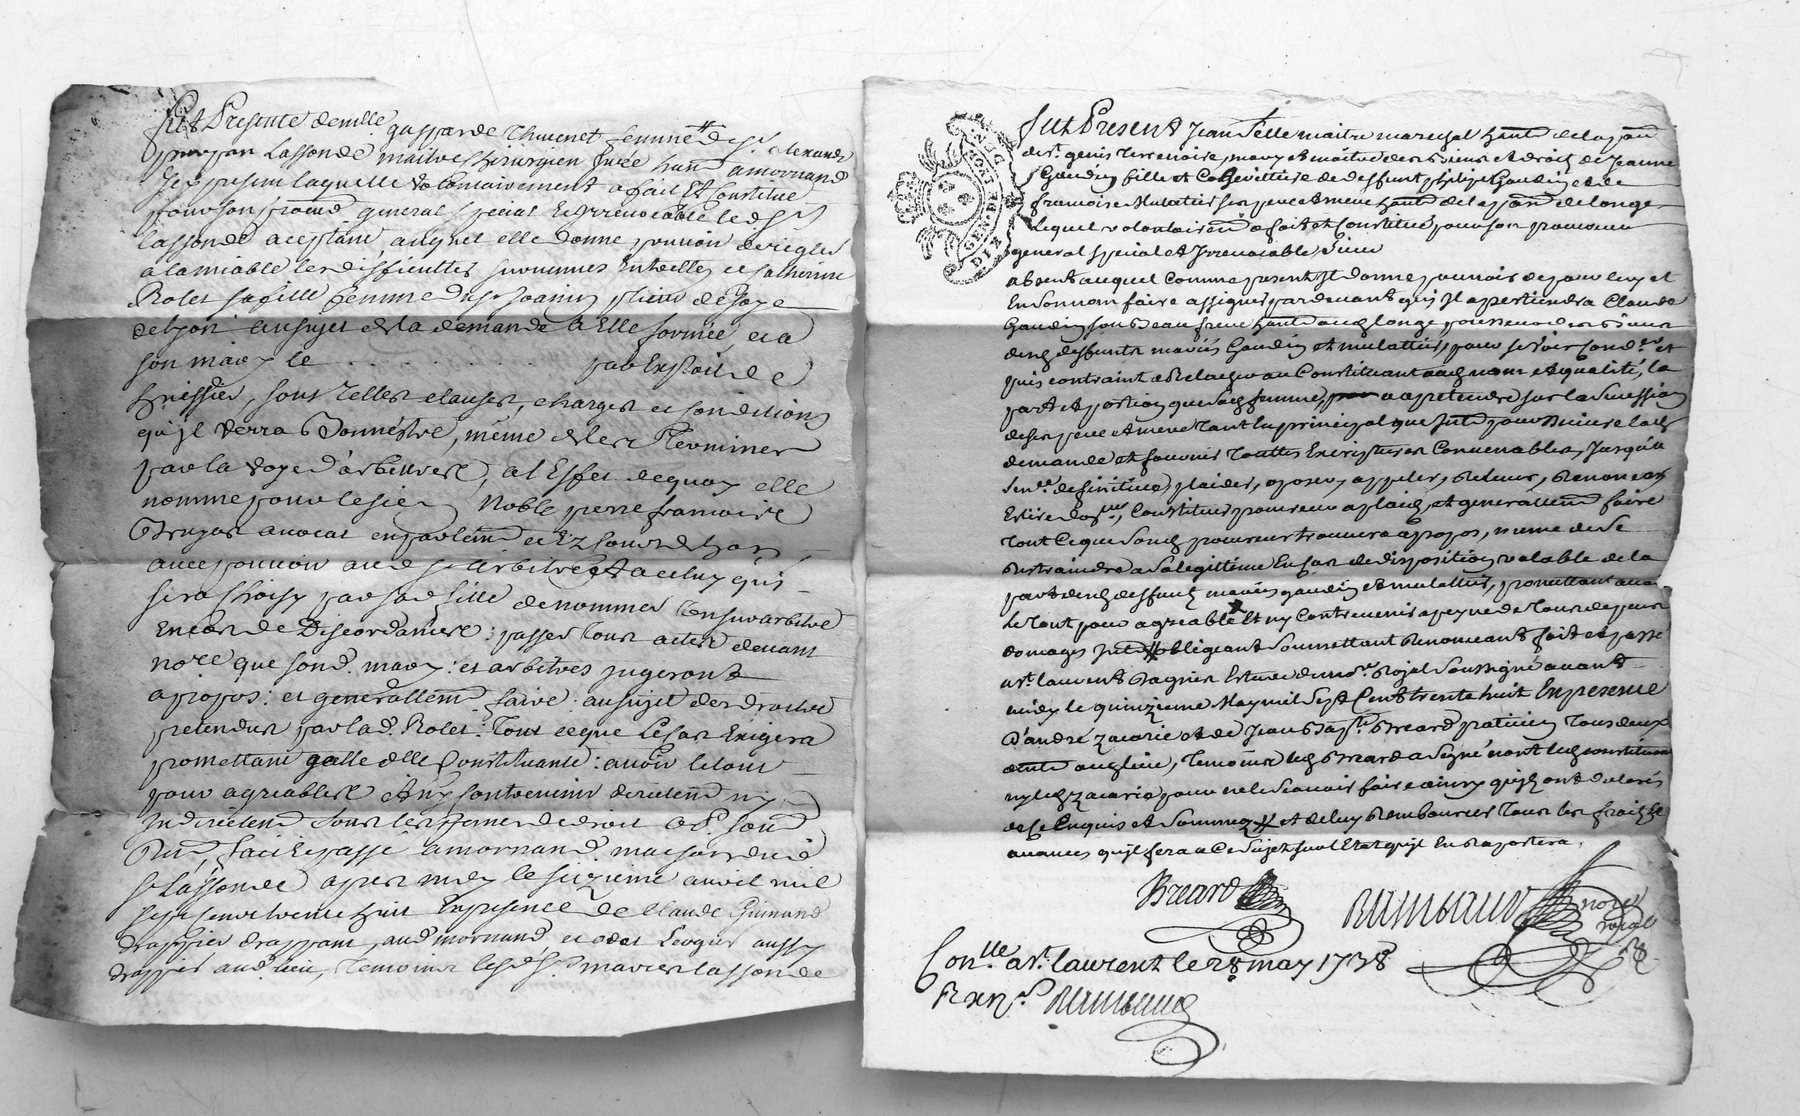 Fut Presente demlle gasparde Thivenet femme de Sr. alexandre
lassonde maitre chirurgien Juré hant. a mornand
Icy present laquelle volontairement a fait Et Constitué
pour son general special Et Irrevocable led. Sr.
lassonde aceptant, auquel elle donne pouvoir de regler
a lamiable les difficultes survenues Entrelles et Catherine
Rolet sa fille femme du Sr. de
de lyon au sujet de la demande a Elle formée, et a
son mary le . . . . . . . . . par Exploit de
huissier, sous telles clauses, charges et conditions
qu'jl verra Bonnestre, même de les Terminer
par la voye d'arbitres, a l'Effet dequoy elle
nomme pour le sien Noble pierre francoise
avocat en parlem. et Ez Cours de lyon
avec pouvoir aud. Sr. arbitre Et a celuy qui
sera choisy par sad. fille de nommer un surarbitre
En cas de Discordance : passer Tous actes devant
nore. que sond. mary : et arbitres jugeront
apropos : et generallem. faire : au sujet des droits
pretendus par lad. Rolet. Tout ce que le cas Exigera
promettant Constituante : avoir le tout
pour agreable Et ny contrevenir directem. ny
Indirectem. sous les peines de droit
fait Et passé a mornand. maison dud.
Sr. lassonde apres midy le seizieme avril mil
sept cent trente huit En presence de Claude Guinand
drappier drappant, aud. mornand et aussy
drappier aud. lieu, temoins lesd. Sr. mariés lassonde
GEN. DE LYON
DIX DEN.
Fut Present Jean Selle maitre marechal hant. de la par.
de st. genis terrenoire, mary et maitre des biens et droits de Jeanne
Gaudin fille et Cohéritière de deffunt philipe Gaudin et de
francoise Mulatier ses pere et mere hant. de la par. de longe
Lequel volontairem. a fait et Constitué pour son procureur
general special et Irrevocable, Sieur
absent auquel Comme present Jl donne pouvoir de pour luy et
En son nom faire assigner pardevant qu'jl apartiendra Claude
Gaudin son beau frere hant. aud. longe possesseur des biens
desd. deffunts mariés Gaudin et mulattier, pour se voir cond. et
puis contraint a Relacher au Constituant aud. nom et qualité, la
part et portion que sad. femme, a a pretendre sur la succession
de ses pere et mere tant En principal que fruits pour suivre lad.
demande et fournir Touttes Ecriptures Convenables, Jusqu'a
Sence. definitive, plaider, oposer, appeler, Relever, Renoncer
Constituer procureur a plaids, et generallem. faire
tout Ce que Sond. procureur trouvera apropos, meme de Se
Restraindre a sa legittime En cas de disposition valable de la
part desd. deffunts mariés gaudin et mulattier, promettant avoir
le tout pour agreable Et ny Contrevenir a peyne de tous depens
domages obligeant soumettant Renonceant fait et passé
a st. laurent Dagnier Estude du nore. Royal Soussigné avant
midy le quinzieme May mil Sept Cent trente huit En presence
D'andré Zacarie et de Jean Bapt. Breard praticien tous deux
aud. lieu, temoins led. Breard a Signé non led. constituant
ny led. Zacarie pour ne le Scavoir faire ainsy qu'jls ont declaré
de Ce Enquis et Sommés et de luy Rembourser Tous les fraix et
avances qu'jl fera a Ce Sujet sur l'Etat qu'jl En Raportera.
Breard
Rambaud nore royal
Conlle. a st. laurent le 28 may 1738
Rambaud